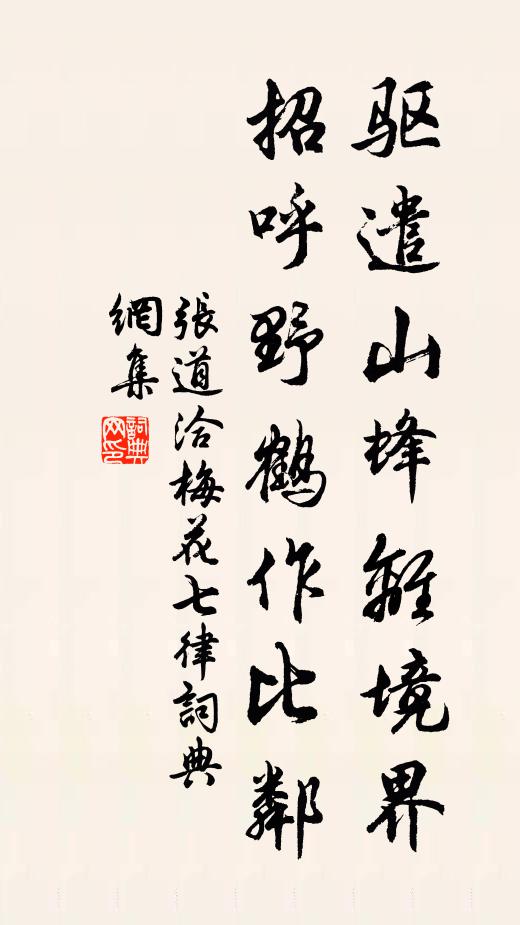 驱遣山蜂離境界
招呼野鶴作比鄰
張道洽梅花七律詞典
網集
詞典
网印